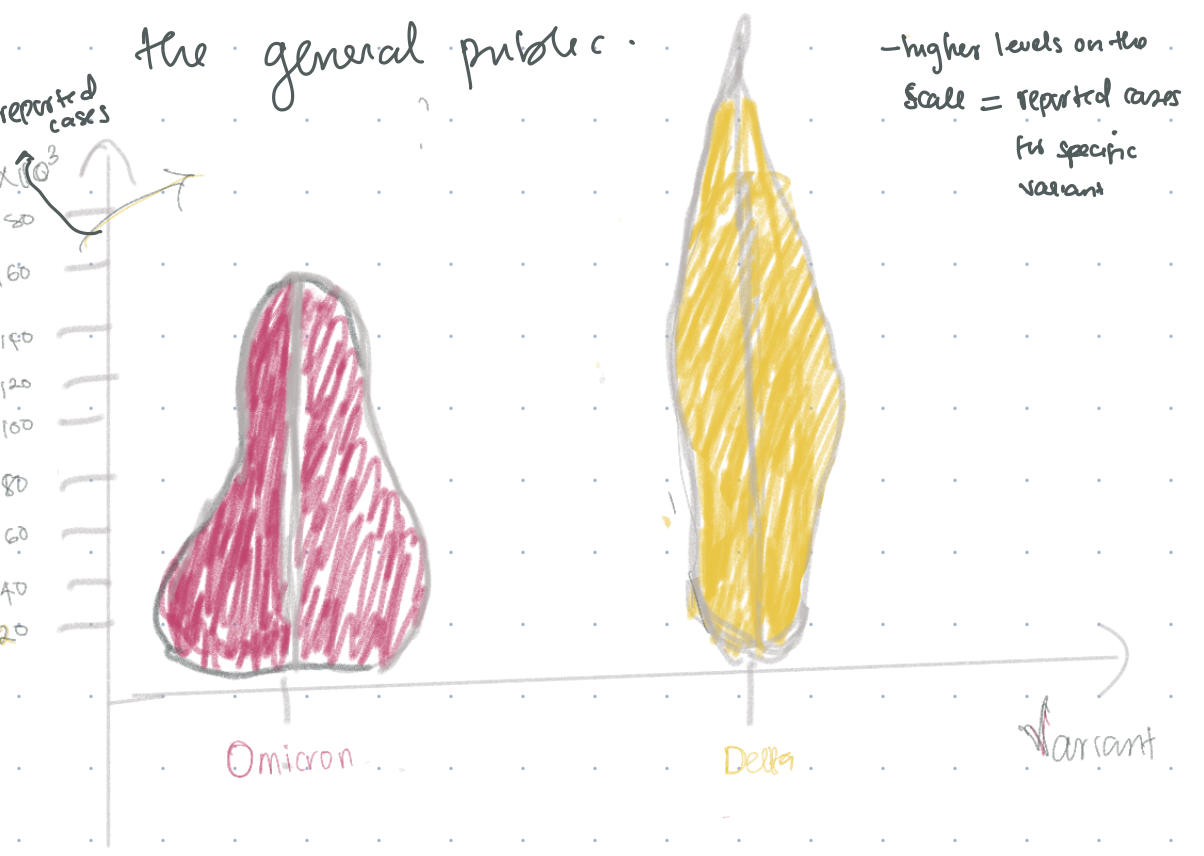 the general public.
-higher levels on the
scale = reported cases
for specific
variant
reported
cases
x10³
80
160
140
120
100
80
60
40
20
Omicron
Delta
Variant